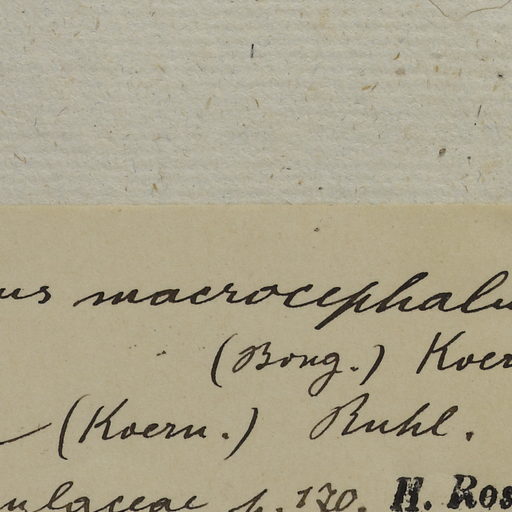 us macrocephalu
(Bong.) Koer
(Koern.) Ruhl.
ulaceae p. 170. H. Ros